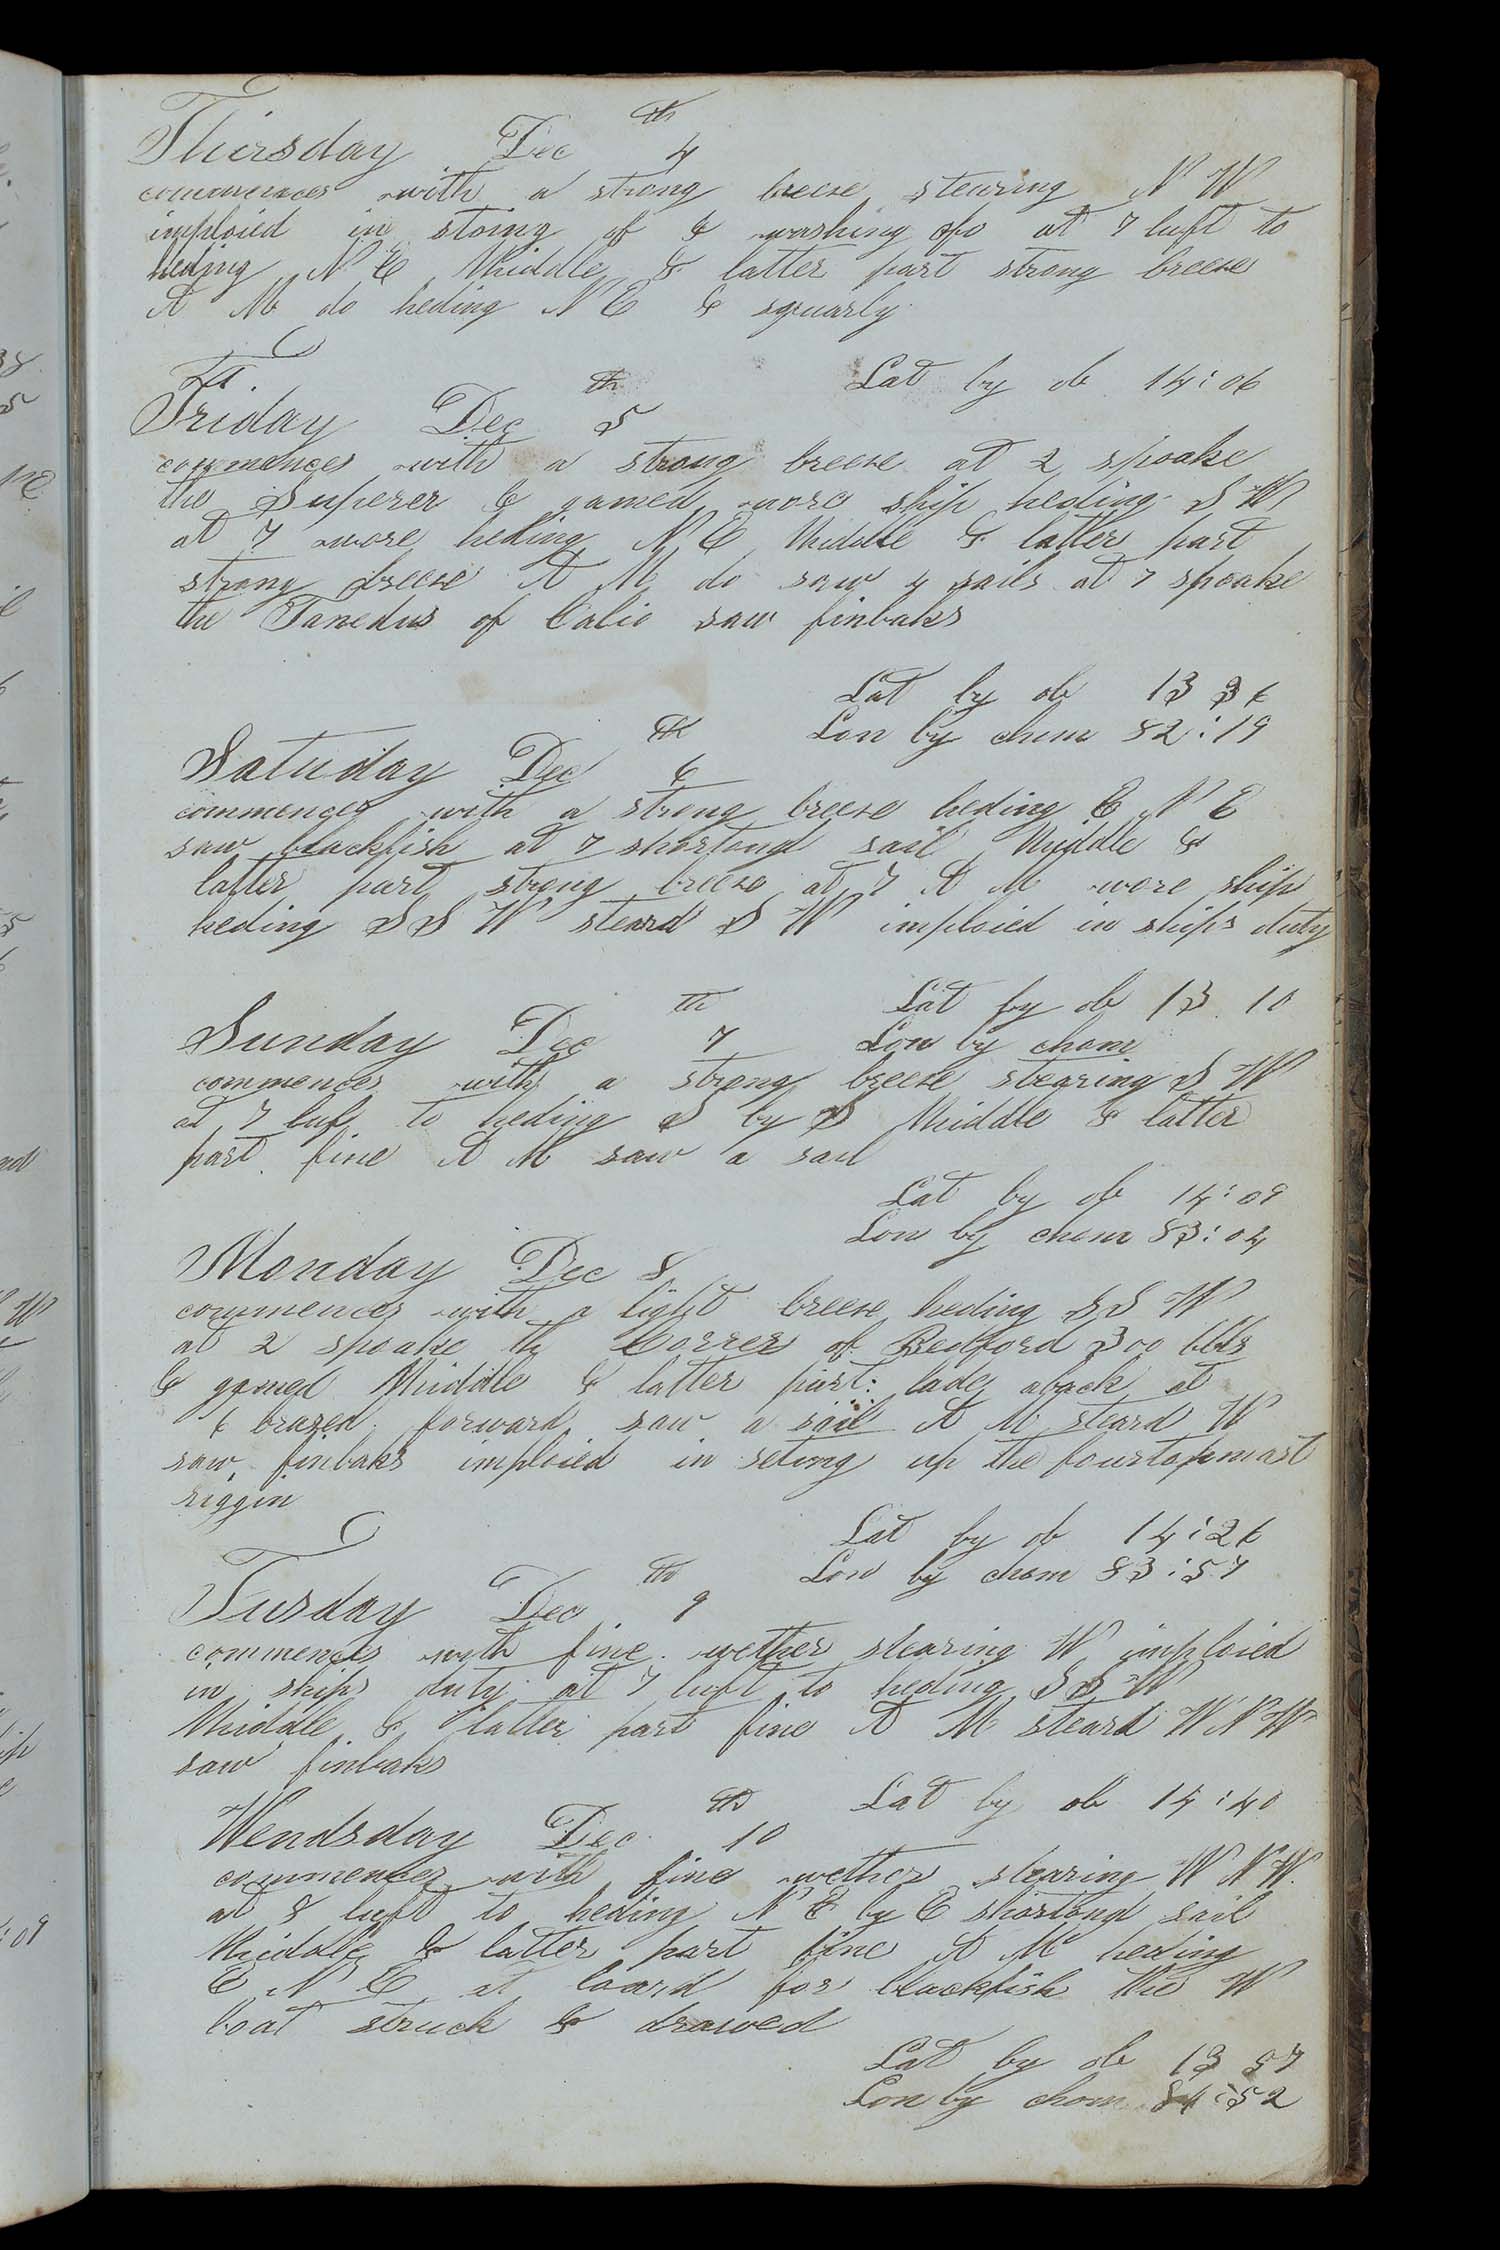 Thursday Dec 4th
commences with a strong breese stearing N W
imploied in stoing of & washing of at 7 luft to
heding N E Middle & latter part strong breese
A M do heding N E & squarly
Lat by ob 14:06
Friday Dec 5th
commences with a strong breese at 2 spoake
the Superer & gamed wore ship heding S W
at 7 wore heding N E Middle & latter part
strong breese A M do saw 4 sails at 7 spoake
the Tanedus of Calio saw finbaks
Lat by ob 13 36
Lon by chom 82:19
Satuday Dec 6th
commences with a strong breese heding E N E
saw blackfish at 7 shortond sail Middle &
latter part strong breese at 7 A M wore ship
heding S S W steard S W imploied in ships duty
Lat by ob 13 10
Lon by chom
Sunday Dec 7th
commences with a strong breese stearing S W
at 7 luf to heding S by S Middle & latter
part fine A M saw a sail
Lat by ob 14:09
Lon by chom 83:04
Monday Dec 8
commences with a light breese heding S S W
at 2 spoake th of Bedford 300 bbls
& gamed Middle & latter part: lade aback at
6 brased forward saw a sail A M steard W
saw finbaks imploied in seting up the fourtopmast
riggin
Lat by ob 14:26
Lon by chom 83:57
Tusday Dec 9th
commences with fine wether stearing W imploied
in ships duty at 7 luft to heding S S W
Middle & latter part fine A M steard W N W
saw finbaks
Lat by ob 14:40
Wendsday Dec 10th
commences with fine wether stearing W N W.
at 8 luft to heding N E by E shortond sail
Middle & latter part fine A M heding
E N E at loard for blackfish the W
boat struck & drawed
Lat by ob 13 57
Lon by chom 84:52